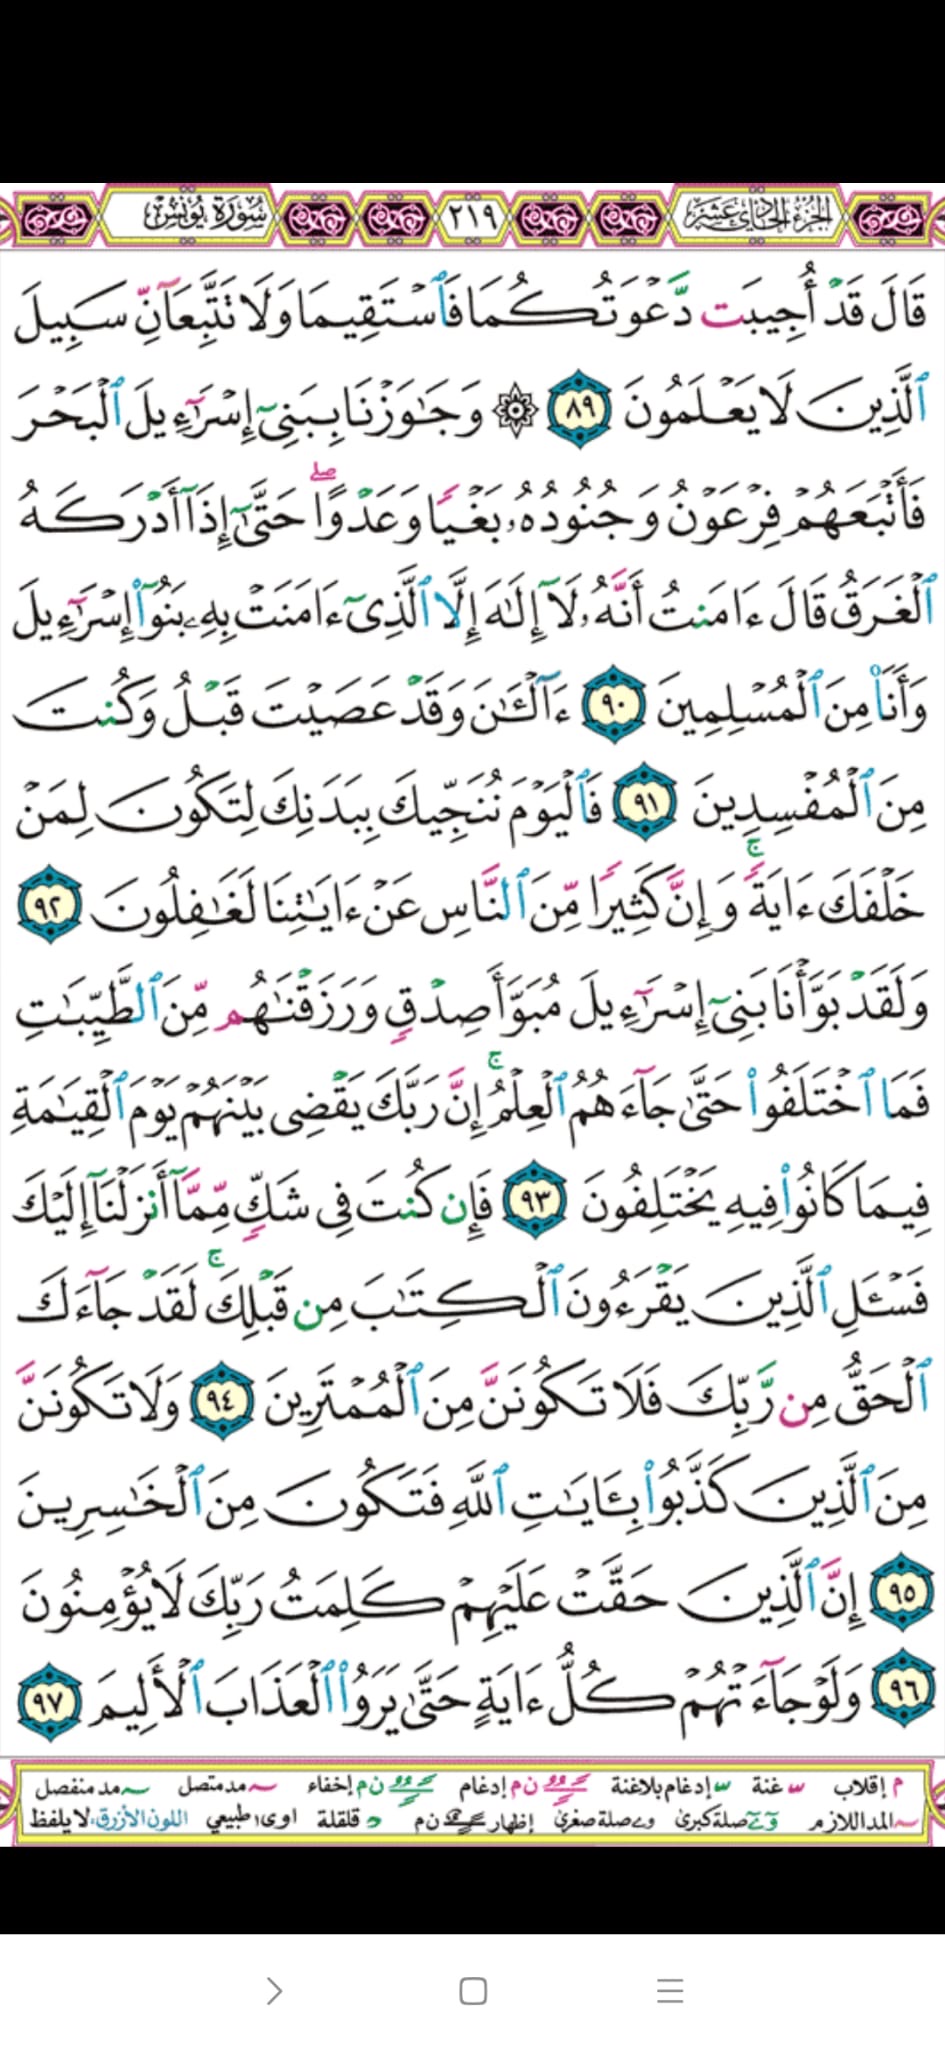 الجزء الحادي عشر ٢١٩ سورة يونس
قَالَ قَدْ أُجِيبَت دَّعْوَتُكُمَا فَٱسْتَقِيمَا وَلَا تَتَّبِعَآنِّ سَبِيلَ
ٱلَّذِينَ لَا يَعْلَمُونَ ٨٩ ۞ وَجَٰوَزْنَا بِبَنِىٓ إِسْرَٰٓءِيلَ ٱلْبَحْرَ
فَأَتْبَعَهُمْ فِرْعَوْنُ وَجُنُودُهُۥ بَغْيًا وَعَدْوًا ۖ حَتَّىٰٓ إِذَآ أَدْرَكَهُ
ٱلْغَرَقُ قَالَ ءَامَنتُ أَنَّهُۥ لَآ إِلَٰهَ إِلَّا ٱلَّذِىٓ ءَامَنَتْ بِهِۦ بَنُوٓا۟ إِسْرَٰٓءِيلَ
وَأَنَا۠ مِنَ ٱلْمُسْلِمِينَ ٩٠ ءَآلْـَٰٔنَ وَقَدْ عَصَيْتَ قَبْلُ وَكُنتَ
مِنَ ٱلْمُفْسِدِينَ ٩١ فَٱلْيَوْمَ نُنَجِّيكَ بِبَدَنِكَ لِتَكُونَ لِمَنْ
خَلْفَكَ ءَايَةً ۚ وَإِنَّ كَثِيرًا مِّنَ ٱلنَّاسِ عَنْ ءَايَٰتِنَا لَغَٰفِلُونَ ٩٢
وَلَقَدْ بَوَّأْنَا بَنِىٓ إِسْرَٰٓءِيلَ مُبَوَّأَ صِدْقٍ وَرَزَقْنَٰهُم مِّنَ ٱلطَّيِّبَٰتِ
فَمَا ٱخْتَلَفُوا۟ حَتَّىٰ جَآءَهُمُ ٱلْعِلْمُ ۚ إِنَّ رَبَّكَ يَقْضِى بَيْنَهُمْ يَوْمَ ٱلْقِيَٰمَةِ
فِيمَا كَانُوا۟ فِيهِ يَخْتَلِفُونَ ٩٣ فَإِن كُنتَ فِى شَكٍّ مِّمَّآ أَنزَلْنَآ إِلَيْكَ
فَسْـَٔلِ ٱلَّذِينَ يَقْرَءُونَ ٱلْكِتَٰبَ مِن قَبْلِكَ ۚ لَقَدْ جَآءَكَ
ٱلْحَقُّ مِن رَّبِّكَ فَلَا تَكُونَنَّ مِنَ ٱلْمُمْتَرِينَ ٩٤ وَلَا تَكُونَنَّ
مِنَ ٱلَّذِينَ كَذَّبُوا۟ بِـَٔايَٰتِ ٱللَّهِ فَتَكُونَ مِنَ ٱلْخَٰسِرِينَ
٩٥ إِنَّ ٱلَّذِينَ حَقَّتْ عَلَيْهِمْ كَلِمَتُ رَبِّكَ لَا يُؤْمِنُونَ
٩٦ وَلَوْ جَآءَتْهُمْ كُلُّ ءَايَةٍ حَتَّىٰ يَرَوُا۟ ٱلْعَذَابَ ٱلْأَلِيمَ ٩٧
م إقلاب غنة إدغام بلاغنة ن م إدغام ن م إخفاء مد متصل مد منفصل
المد اللازم صلة كبرى صلة صغرى إظهار ن م قلقلة اوى طبيعي اللون الأزرق: لا يلفظ